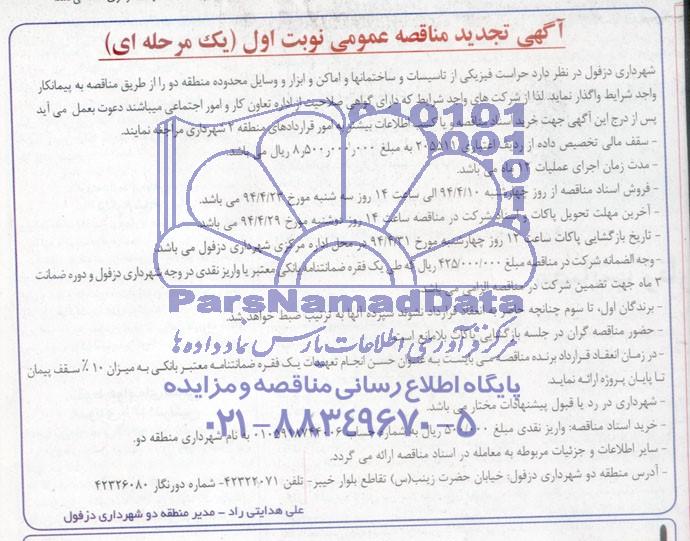 آگهی تجدید مناقصه عمومی نوبت اول (یک مرحله ای)
شهرداری دزفول در نظر دارد حراست فیزیکی از تاسیسات و ساختمانها و اماکن و ابزار و وسایل محدوده منطقه دو را از طریق مناقصه به پیمانکار
واجد شرایط واگذار نماید. لذا از شرکت های واجد شرایط که دارای گواهی صلاحیت از اداره تعاون کار و امور اجتماعی میباشند دعوت بعمل می آید
پس از درج این آگهی جهت خرید اسناد مناقصه و یا کسب اطلاعات بیشتر به امور قراردادهای منطقه ۲ شهرداری مراجعه نمایند.
- سقف مالی تخصیص داده از ردیف اعتباری ۲۰۵۵۱۱ به مبلغ ۸٫۵۰۰٫۰۰۰٫۰۰۰ ریال می باشد.
- مدت زمان اجرای عملیات ۱۲ ماه می باشد.
- فروش اسناد مناقصه از روز چهارشنبه ۹۴/۴/۱۰ الی ساعت ۱۴ روز سه شنبه مورخ ۹۴/۴/۲۳ می باشد.
- آخرین مهلت تحویل پاکات و اسناد شرکت در مناقصه ساعت ۱۴ روز دوشنبه مورخ ۹۴/۴/۲۹ می باشد.
- تاریخ بازگشایی پاکات ساعت ۱۲ روز چهارشنبه مورخ ۹۴/۴/۳۱ در محل اداره مرکزی شهرداری دزفول می باشد.
- وجه الضمانه شرکت در مناقصه مبلغ ۴۲۵/۰۰۰/۰۰۰ ریال که طی یک فقره ضمانتنامه بانکی معتبر یا واریز نقدی در وجه شهرداری دزفول و دوره ضمانت
۳ ماه جهت تضمین شرکت در مناقصه الزامی می باشد.
- برندگان اول، تا سوم چنانچه حاضر به انعقاد قرارداد نشوند سپرده آنها به ترتیب ضبط خواهد شد.
- حضور مناقصه گران در جلسه بازگشایی پاکات بلامانع است.
- در زمان انعقاد قرارداد برنده مناقصه می بایست به عنوان حسن انجام تعهدات یک فقره ضمانتنامه معتبر بانکی به میزان ۱۰٪ سقف پیمان
تا پایان پروژه ارائه نماید.
- شهرداری در رد یا قبول پیشنهادات مختار می باشد.
- خرید اسناد مناقصه: واریز نقدی مبلغ ریال به شماره حساب به نام شهرداری منطقه دو.
- سایر اطلاعات و جزئیات مربوطه به معامله در اسناد مناقصه ارائه می گردد.
- آدرس منطقه دو شهرداری دزفول: خیابان حضرت زینب(س) تقاطع بلوار خیبر- تلفن ۴۲۳۲۲۰۷۱- شماره دورنگار ۴۲۳۲۶۰۸۰
علی هدایتی راد - مدیر منطقه دو شهرداری دزفول
ParsNamadData
مرکز فرآوری اطلاعات پارس نماد داده ها
پایگاه اطلاع رسانی مناقصه و مزایده
۰۲۱-۸۸۳۴۹۶۷۰-۵